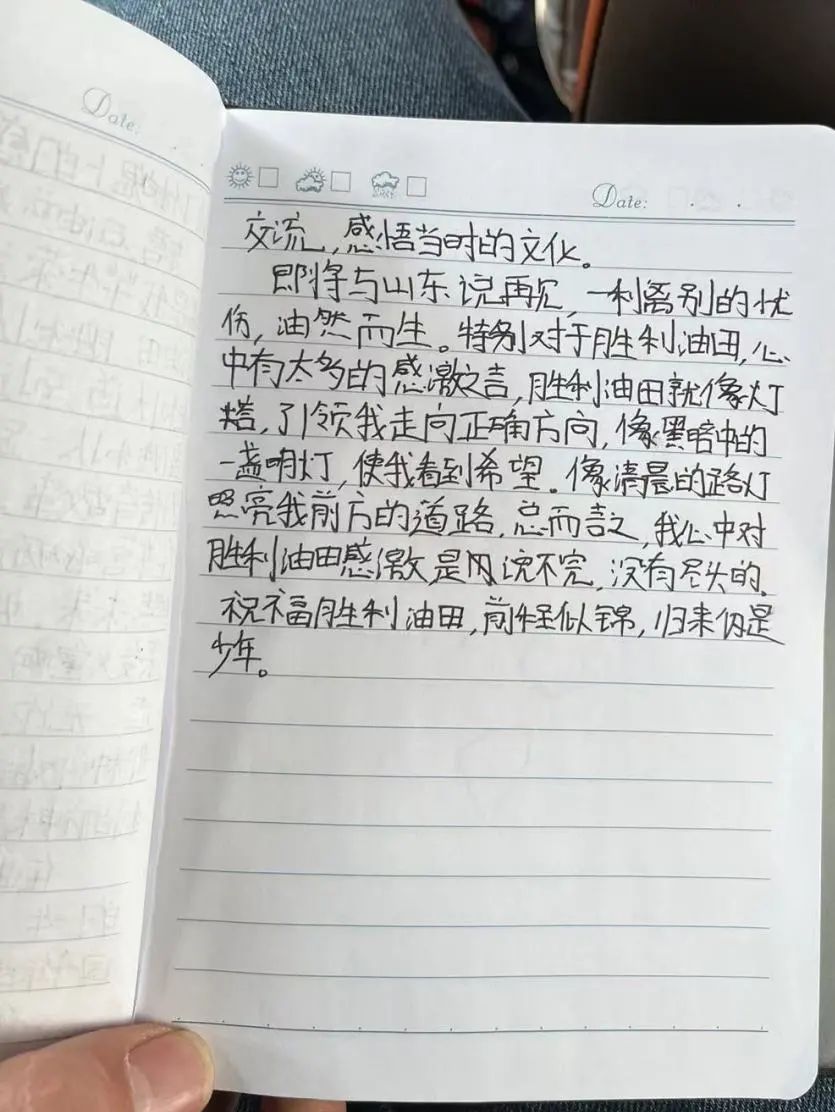 Date:
Date:
交流,感悟当时的文化。
即将与山东说再见,一种离别的忧
伤,油然而生。特别对于胜利油田,心
中有太多的感激之言,胜利油田就像灯
塔,引领我走向正确方向,像黑暗中的
一盏明灯,使我看到希望。像清晨的路灯
照亮我前方的道路。总而言之,我心中对
胜利油田感激,是说不完,没有尽头的。
祝福胜利油田,前程似锦,归来仍是
少年。